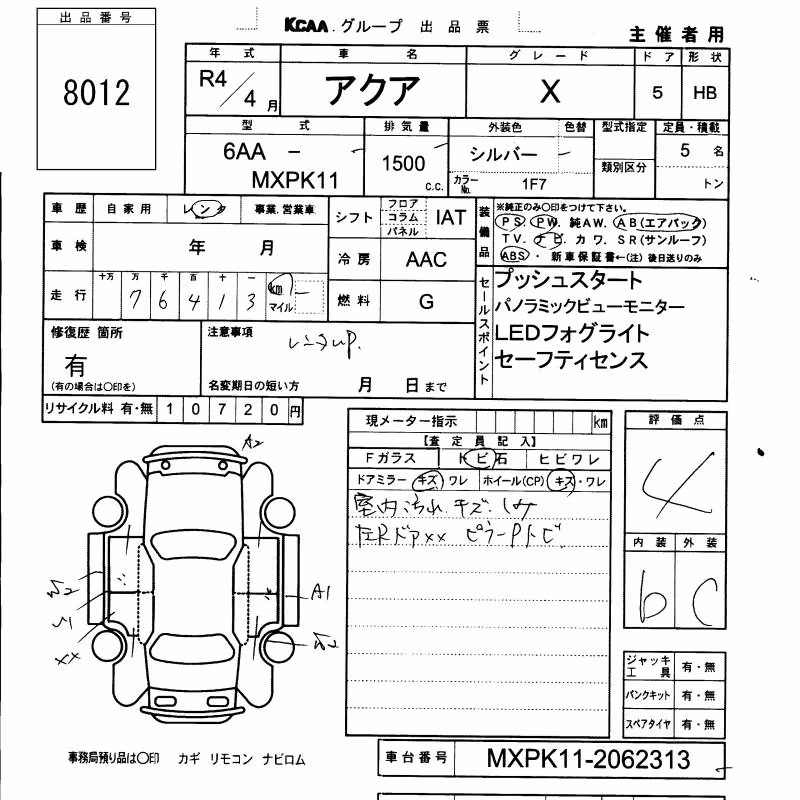 出品番号
8012
KCAA グループ 出品票
主催者用
年式 車名 グレード ドア 形状
R4/4月 アクア X 5 HB
型式 排気量 外装色 色替 型式指定 定員・積載
6AA - MXPK11 1500 c.c. シルバー - 類別区分 5名
カラーNo. 1F7 トン
車歴 自家用 レンタ 事業.営業車
車検 年 月
走行 十万 万 千 百 十 一 km マイル
7 6 4 1 3
シフト フロア コラム パネル IAT
冷房 AAC
燃料 G
装備品
※純正のみ〇印をつけて下さい。
PS. PW. 純AW. AB(エアバック)
TV. ナビ. カワ. SR(サンルーフ)
ABS・ 新車保証書←(注) 後日送りのみ
セールスポイント
プッシュスタート
パノラミックビューモニター
LEDフォグライト
セーフティセンス
修復歴 箇所
有
(有の場合は〇印を)
注意事項
レンタup.
名変期日の短い方 月 日まで
リサイクル料 有・無 1 0 7 2 0 円
現メーター指示 km
【査定員記入】
Fガラス トビ石 ヒビワレ
ドアミラー キズ ワレ ホイール(CP) キズ・ワレ
室内汚れ.キズ.シミ
左Rドアxx ピラーPトビ
評価点
4
内装 外装
b C
A2
A1
S2
S1
xx
S2
ジャッキ 工具 有・無
パンクキット 有・無
スペアタイヤ 有・無
事務局預り品は〇印 カギ リモコン ナビロム
車台番号 MXPK11-2062313